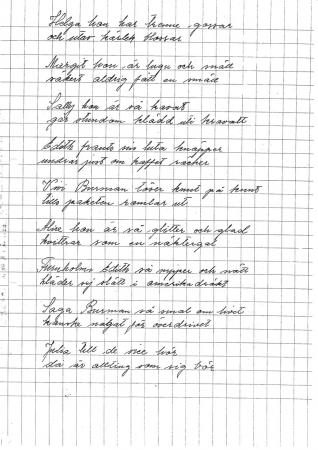 Helga hon har trenne gossar
och utav kärlek blossar
Margit hon är lugn och nätt
vackert aldrig fått en
Sally hon är så kavat
går stundom klädd uti kravatt
Edith framför sin luta knäpper
undrar just om kaffet räcker
Vivi Burman löser knut på knut
tills paketen ramlar ut
Alice hon är så glitter och glad
kvittrar som en näktergal
Edith så nypper och nätt
kläder sig slätt i amerikadräkt
Saga Burman så smal om livet
kanske något för överdrivet
Julia Till de vice hör
då är allting som sig bör